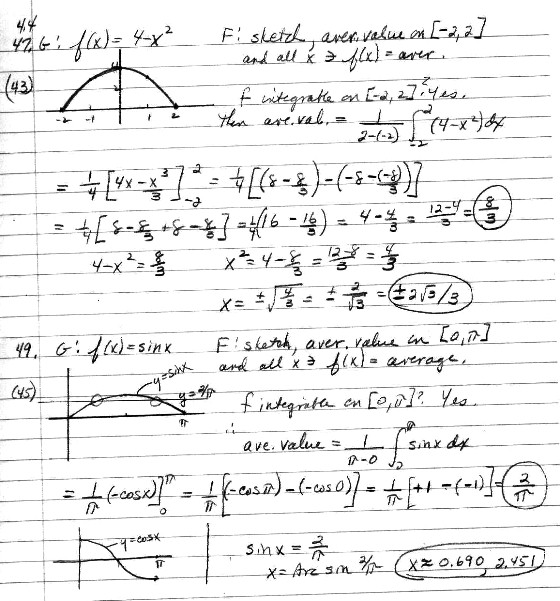 4.4
47. G: f(x) = 4-x²   F: sketch, aver. value on [-2,2]
and all x ∋ f(x) = aver.
(43)
-2 -1 1 2
f integrable on [-2,2]? Yes.
Then ave. val. = 1/(2-(-2)) ∫_{-2}^{2} (4-x²)dx
= 1/4 [4x - x³/3]_{-2}^{2} = 1/4 [(8 - 8/3) - (-8 - (-8/3))]
= 1/4 [8 - 8/3 + 8 - 8/3] = 1/4 (16 - 16/3) = 4 - 4/3 = (12-4)/3 = 8/3
4-x² = 8/3   x² = 4 - 8/3 = (12-8)/3 = 4/3
x = ±√(4/3) = ± 2/√3 = ±2√3/3
49. G: f(x) = sinx   F: sketch, aver. value on [0,π]
and all x ∋ f(x) = average.
(45)
y=sinx
y=2/π
π
f integrable on [0,π]? Yes.
∴
ave. value = 1/(π-0) ∫_{0}^{π} sinx dx
= 1/π (-cosx)]_{0}^{π} = 1/π [(-cosπ) - (-cos0)] = 1/π [+1 - (-1)] = 2/π
y=cosx
π
sinx = 2/π
x = Arc sin 2/π   x ≈ 0.690, 2.451